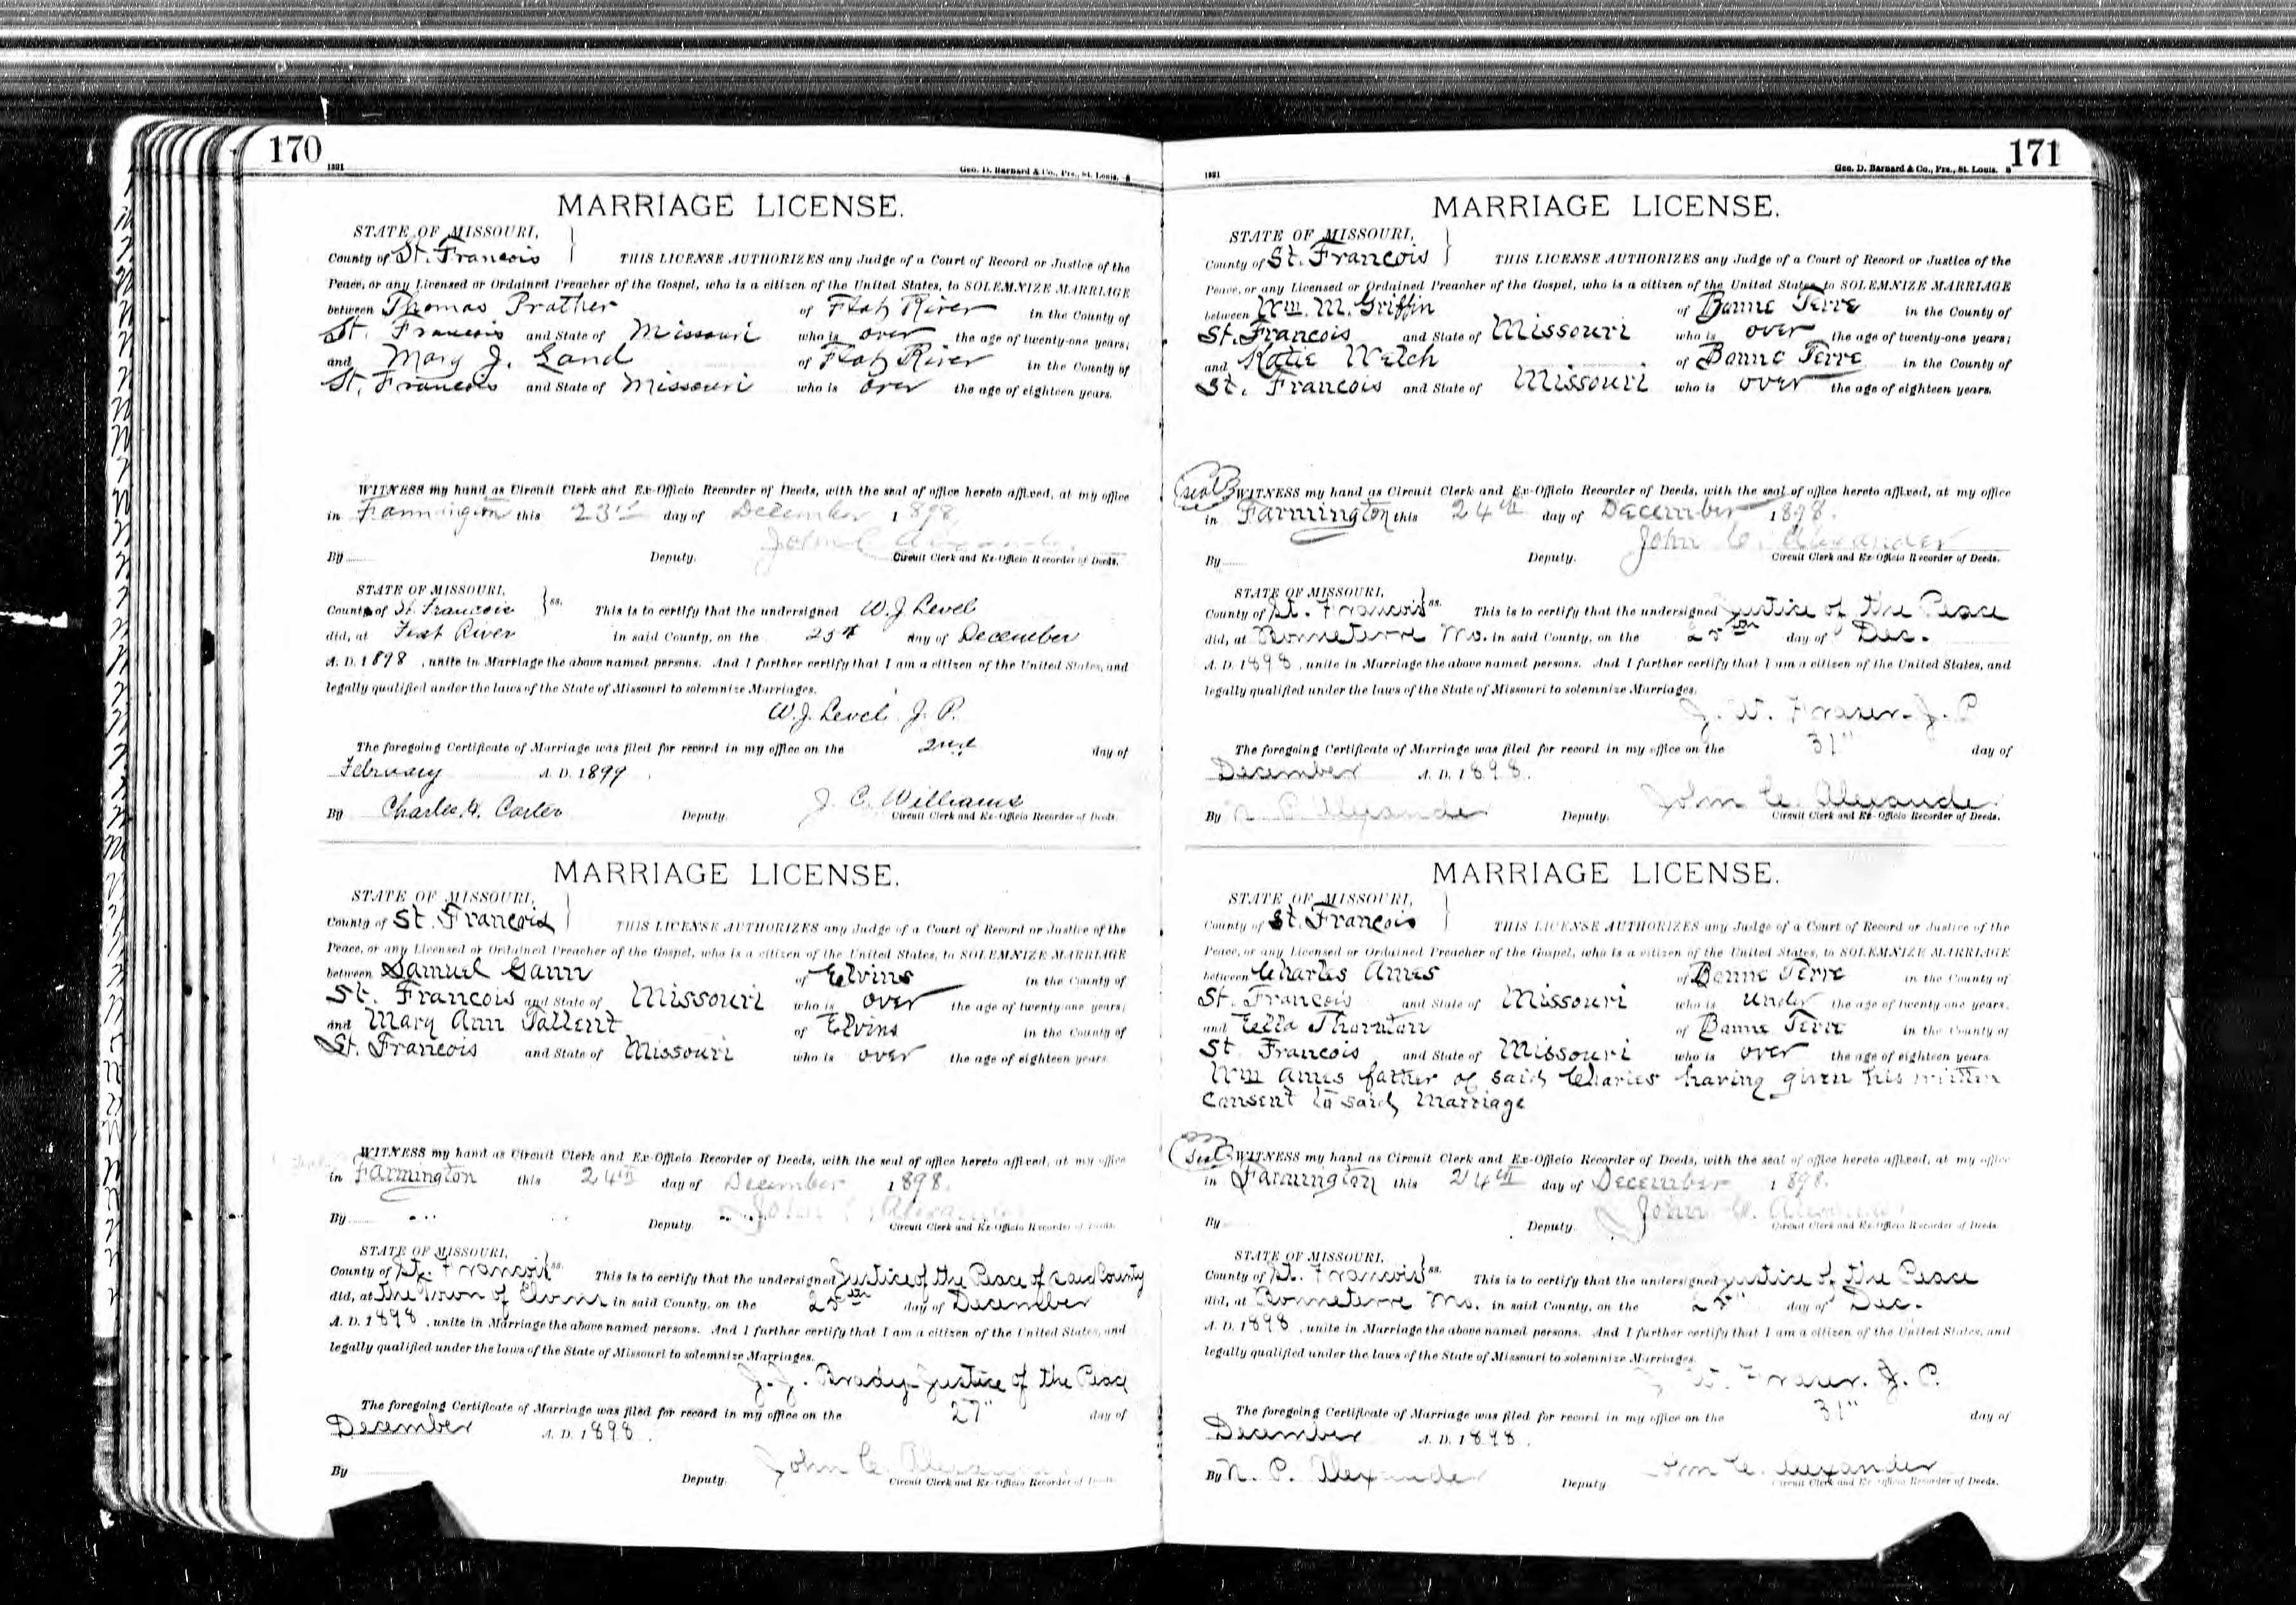 170
1821
Geo. D. Barnard & Co., Prs., St. Louis.
MARRIAGE LICENSE.
STATE OF MISSOURI,
County of St. Francois } THIS LICENSE AUTHORIZES any Judge of a Court of Record or Justice of the
Peace, or any Licensed or Ordained Preacher of the Gospel, who is a citizen of the United States, to SOLEMNIZE MARRIAGE
between Thomas Prather of Flat River in the County of
St. Francois and State of Missouri who is over the age of twenty-one years;
and Mary J. Land of Flat River in the County of
St. Francois and State of Missouri who is over the age of eighteen years.
WITNESS my hand as Circuit Clerk and Ex-Officio Recorder of Deeds, with the seal of office hereto affixed, at my office
in Farmington this 23rd day of December 1898.
John C. Alexander
By Deputy. Circuit Clerk and Ex-Officio Recorder of Deeds.
STATE OF MISSOURI,
County of St. Francois } ss. This is to certify that the undersigned W. J. Level
did, at Flat River in said County, on the 25th day of December
A. D. 1898, unite in Marriage the above named persons. And I further certify that I am a citizen of the United States, and
legally qualified under the laws of the State of Missouri to solemnize Marriages.
W. J. Level J. P.
The foregoing Certificate of Marriage was filed for record in my office on the 2nd day of
February A. D. 1899.
J. C. Williams
By Charles A. Carter Deputy. Circuit Clerk and Ex-Officio Recorder of Deeds.
MARRIAGE LICENSE.
STATE OF MISSOURI,
County of St. Francois } THIS LICENSE AUTHORIZES any Judge of a Court of Record or Justice of the
Peace, or any Licensed or Ordained Preacher of the Gospel, who is a citizen of the United States, to SOLEMNIZE MARRIAGE
between Samuel Gann of Elvins in the County of
St. Francois and State of Missouri who is over the age of twenty-one years;
and Mary Ann Tallent of Elvins in the County of
St. Francois and State of Missouri who is over the age of eighteen years.
WITNESS my hand as Circuit Clerk and Ex-Officio Recorder of Deeds, with the seal of office hereto affixed, at my office
in Farmington this 24th day of December 1898.
John C. Alexander
By Deputy. Circuit Clerk and Ex-Officio Recorder of Deeds.
STATE OF MISSOURI,
County of St. Francois } ss. This is to certify that the undersigned Justice of the Peace of said County
did, at the Town of Elvins in said County, on the 25th day of December
A. D. 1898, unite in Marriage the above named persons. And I further certify that I am a citizen of the United States, and
legally qualified under the laws of the State of Missouri to solemnize Marriages.
J. J. Brady Justice of the Peace
The foregoing Certificate of Marriage was filed for record in my office on the 27" day of
December A. D. 1898.
John C. Alexander
By Deputy. Circuit Clerk and Ex-Officio Recorder of Deeds.
171
1821
Geo. D. Barnard & Co., Prs., St. Louis.
MARRIAGE LICENSE.
STATE OF MISSOURI,
County of St. Francois } THIS LICENSE AUTHORIZES any Judge of a Court of Record or Justice of the
Peace, or any Licensed or Ordained Preacher of the Gospel, who is a citizen of the United States, to SOLEMNIZE MARRIAGE
between Wm. M. Griffin of Bonne Terre in the County of
St. Francois and State of Missouri who is over the age of twenty-one years;
and Katie Welch of Bonne Terre in the County of
St. Francois and State of Missouri who is over the age of eighteen years.
Seal WITNESS my hand as Circuit Clerk and Ex-Officio Recorder of Deeds, with the seal of office hereto affixed, at my office
in Farmington this 24th day of December 1898.
John C. Alexander
By Deputy. Circuit Clerk and Ex-Officio Recorder of Deeds.
STATE OF MISSOURI,
County of St. Francois } ss. This is to certify that the undersigned Justice of the Peace
did, at Bonneterre Mo. in said County, on the 25th day of Dec.
A. D. 1898, unite in Marriage the above named persons. And I further certify that I am a citizen of the United States, and
legally qualified under the laws of the State of Missouri to solemnize Marriages.
J. W. Fraser. J. P.
The foregoing Certificate of Marriage was filed for record in my office on the 31" day of
December A. D. 1898.
John C. Alexander
By N. P. Alexander Deputy. Circuit Clerk and Ex-Officio Recorder of Deeds.
MARRIAGE LICENSE.
STATE OF MISSOURI,
County of St. Francois } THIS LICENSE AUTHORIZES any Judge of a Court of Record or Justice of the
Peace, or any Licensed or Ordained Preacher of the Gospel, who is a citizen of the United States, to SOLEMNIZE MARRIAGE
between Charles Ames of Bonne Terre in the County of
St. Francois and State of Missouri who is under the age of twenty-one years,
and Ella Thornton of Bonne Terre in the County of
St. Francois and State of Missouri who is over the age of eighteen years
Wm Ames father of said Charles having given his written
Consent to said Marriage
Seal WITNESS my hand as Circuit Clerk and Ex-Officio Recorder of Deeds, with the seal of office hereto affixed, at my office
in Farmington this 24th day of December 1898.
John C. Alexander
By Deputy. Circuit Clerk and Ex-Officio Recorder of Deeds.
STATE OF MISSOURI,
County of St. Francois } ss. This is to certify that the undersigned Justice of the Peace
did, at Bonneterre Mo. in said County, on the 25" day of Dec.
A. D. 1898, unite in Marriage the above named persons. And I further certify that I am a citizen of the United States, and
legally qualified under the laws of the State of Missouri to solemnize Marriages.
J. W. Fraser. J. P.
The foregoing Certificate of Marriage was filed for record in my office on the 31" day of
December A. D. 1898.
John C. Alexander
By N. P. Alexander Deputy Circuit Clerk and Ex-Officio Recorder of Deeds.